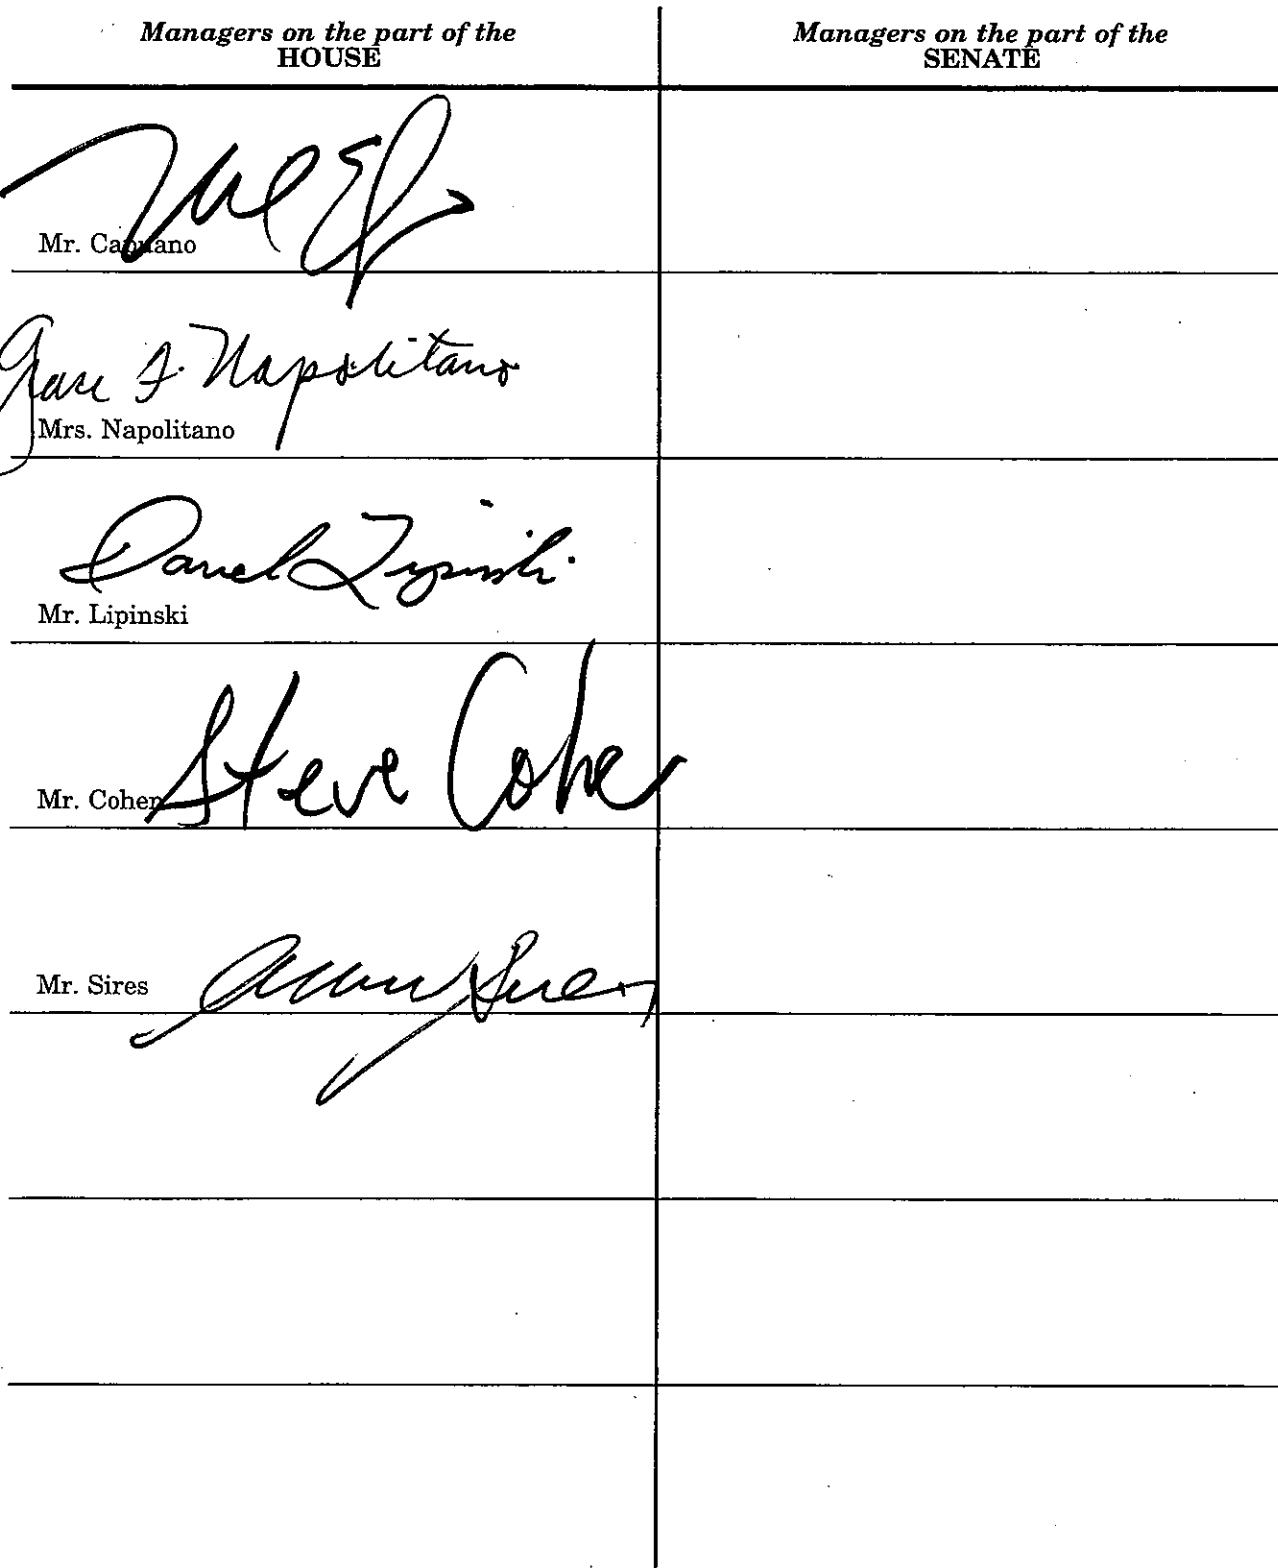 Managers on the part of the
HOUSE
Managers on the part of the
SENATE
Mr. Capuano
Grace F. Napolitano
Mrs. Napolitano
Daniel Lipinski
Mr. Lipinski
Steve Cohen
Mr. Cohen
Mr. Sires